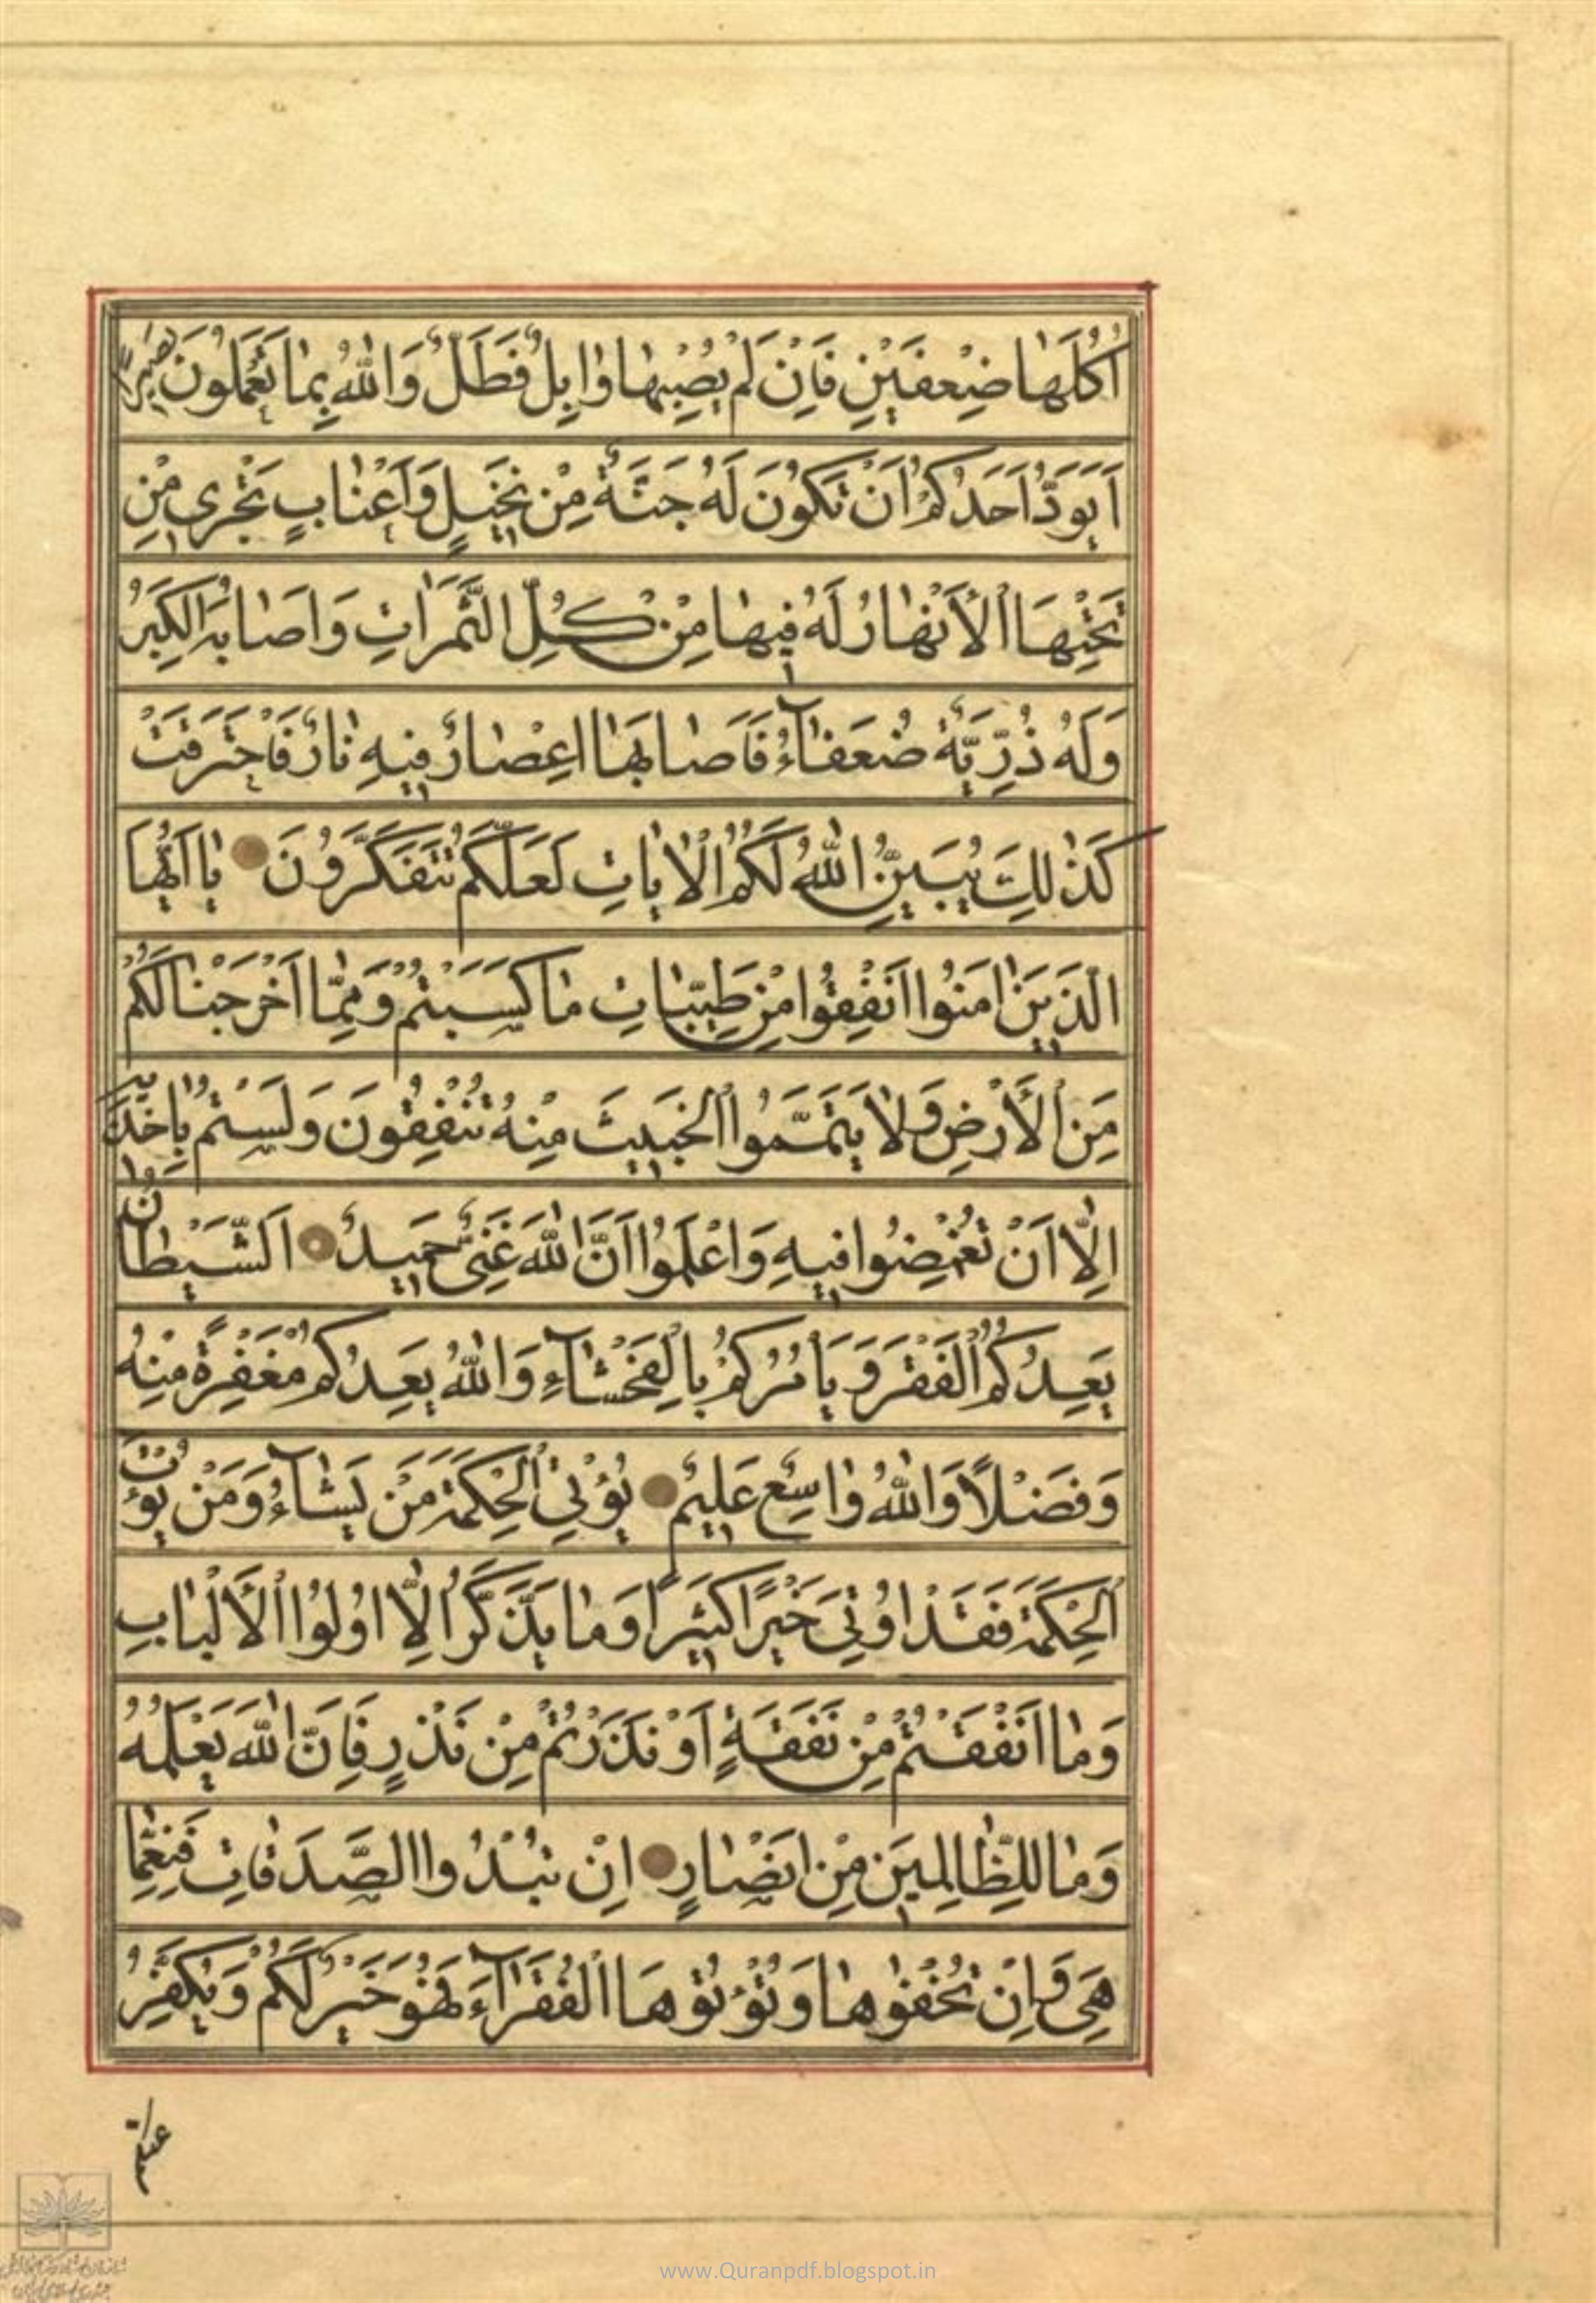 اُكُلَهٰا ضِعْفَيْنِ فَاِنْ لَمْ يُصِبْهٰا وٰابِلٌ فَطَلٌّ وَاللّٰهُ بِمٰا تَعْمَلُونَ بَصِيرٌ
اَيَوَدُّ اَحَدُكُمْ اَنْ تَكُونَ لَهُ جَنَّةٌ مِنْ نَخِيلٍ وَاَعْنٰابٍ تَجْرِى مِنْ
تَحْتِهَا الْاَنْهٰارُ لَهُ فِيهٰا مِنْ كُلِّ الثَّمَرٰاتِ وَاَصٰابَهُ الْكِبَرُ
وَلَهُ ذُرِّيَّةٌ ضُعَفٰآءُ فَاَصٰابَهٰا اِعْصٰارٌ فِيهِ نٰارٌ فَاحْتَرَقَتْ
كَذٰلِكَ يُبَيِّنُ اللّٰهُ لَكُمُ الْاٰيٰاتِ لَعَلَّكُمْ تَتَفَكَّرُونَ يٰا اَيُّهَا
الَّذِينَ اٰمَنُوا اَنْفِقُوا مِنْ طَيِّبٰاتِ مٰا كَسَبْتُمْ وَمِمّٰا اَخْرَجْنٰا لَكُمْ
مِنَ الْاَرْضِ وَلٰا تَيَمَّمُوا الْخَبِيثَ مِنْهُ تُنْفِقُونَ وَلَسْتُمْ بِاٰخِذِيهِ
اِلّٰا اَنْ تُغْمِضُوا فِيهِ وَاعْلَمُوا اَنَّ اللّٰهَ غَنِىٌّ حَمِيدٌ اَلشَّيْطٰانُ
يَعِدُكُمُ الْفَقْرَ وَيَأْمُرُكُمْ بِالْفَحْشٰآءِ وَاللّٰهُ يَعِدُكُمْ مَغْفِرَةً مِنْهُ
وَفَضْلًا وَاللّٰهُ وٰاسِعٌ عَلِيمٌ يُؤْتِى الْحِكْمَةَ مَنْ يَشٰآءُ وَمَنْ يُؤْتَ
الْحِكْمَةَ فَقَدْ اُوتِىَ خَيْرًا كَثِيرًا وَمٰا يَذَّكَّرُ اِلّٰا اُولُوا الْاَلْبٰابِ
وَمٰا اَنْفَقْتُمْ مِنْ نَفَقَةٍ اَوْ نَذَرْتُمْ مِنْ نَذْرٍ فَاِنَّ اللّٰهَ يَعْلَمُهُ
وَمٰا لِلظّٰالِمِينَ مِنْ اَنْصٰارٍ اِنْ تُبْدُوا الصَّدَقٰاتِ فَنِعِمّٰا
هِىَ وَاِنْ تُخْفُوهٰا وَتُؤْتُوهَا الْفُقَرٰآءَ فَهُوَ خَيْرٌ لَكُمْ وَيُكَفِّرُ
عنكم
www.Quranpdf.blogspot.in